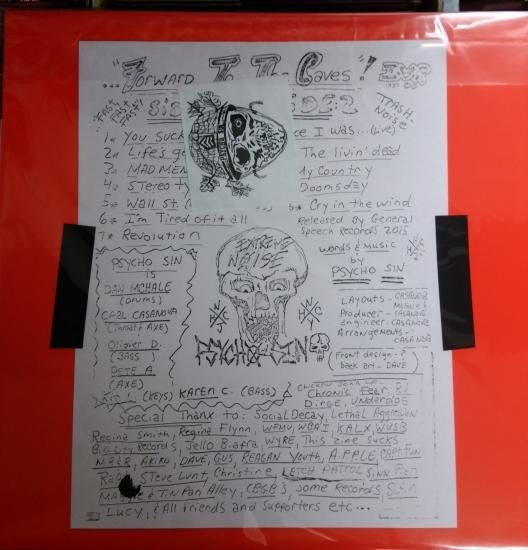 "Forward To The Caves"!
1987
"FAST FAST FAST"
SIDE 2
TRASH NOISE
1. You Suck
ce I was... (Live)
2. Life's g
The livin' dead
3. MAD MEN
My Country
4. Stereo ty
Doomsday
5. Wall St. (
5* Cry in the wind
6. I'm Tired of it all
7* Revolution
Released By General Speech Records 2015
words & music by PSYCHO SIN
PSYCHO SIN
is
DAN McHALE
(DRUMS)
CARL CASANOVA
(Throat, AXE)
Olivier D.
(BASS)
PETE A
(AXE)
(KEYS) KAREN C. (BASS)
EXTREME NOISE
NYHC
PSYCHO SIN
Layouts - CASANOVA
McHALE
Producer - CASANOVA
Engineer - CASANOVA
Arrangements - CASANOVA
(Front design - ?
back art - DAVE)
Chronic Fear, RJ
DIRGE, UNDERDOG
Special Thanx to: Social Decay, Lethal Aggression
Regina Smith, Regina Flynn, WFMU, WBAI, KALX, WUSB
Big City Records, Jello Biafra, WYRE, This zine sucks
MRR, AKIKO, DAVE, GUS, REAGAN Youth, A.P.P.L.E,
Steve Lunt, Christine, LETCH PATROL SINN Fein
& Tin Pan Alley, CBGB's, Some Records
Lucy, & All Friends and Supporters etc...